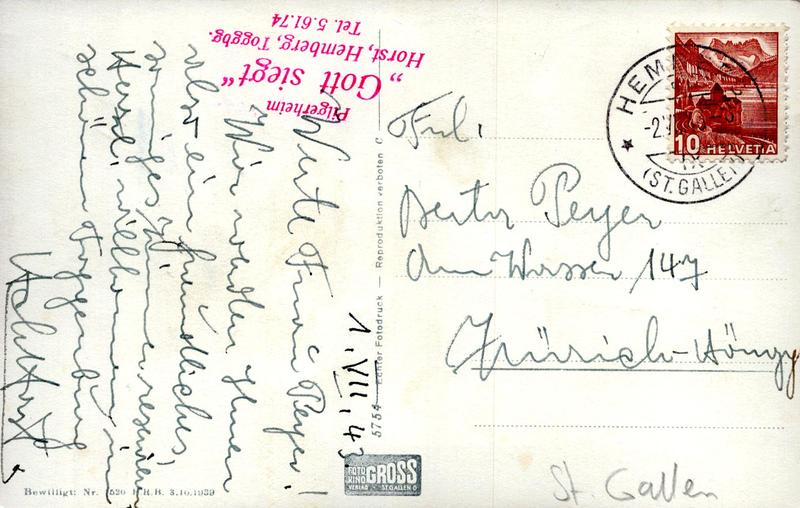 Pilgerheim
„Gott siegt“
Horst, Hemberg, Toggbg.
Tel. 5.61.74
1.VII.43
Werte Frau Peyer!
Wir werden Ihnen
also ein freundliches,
Zimmer reservieren
Herzl. willkommen im
schönen Toggenburg
Frl.
Peyer
Am Wasser 147
Zürich-Höngg
HEMBERG
(ST. GALLEN)
10 HELVETIA
5754 Echter Fotodruck — Reproduktion verboten C
FOTO
KINO GROSS
VERLAG ST. GALLEN O
Bewilligt: Nr. 7520 B.R.B. 3.10.1939
St. Gallen